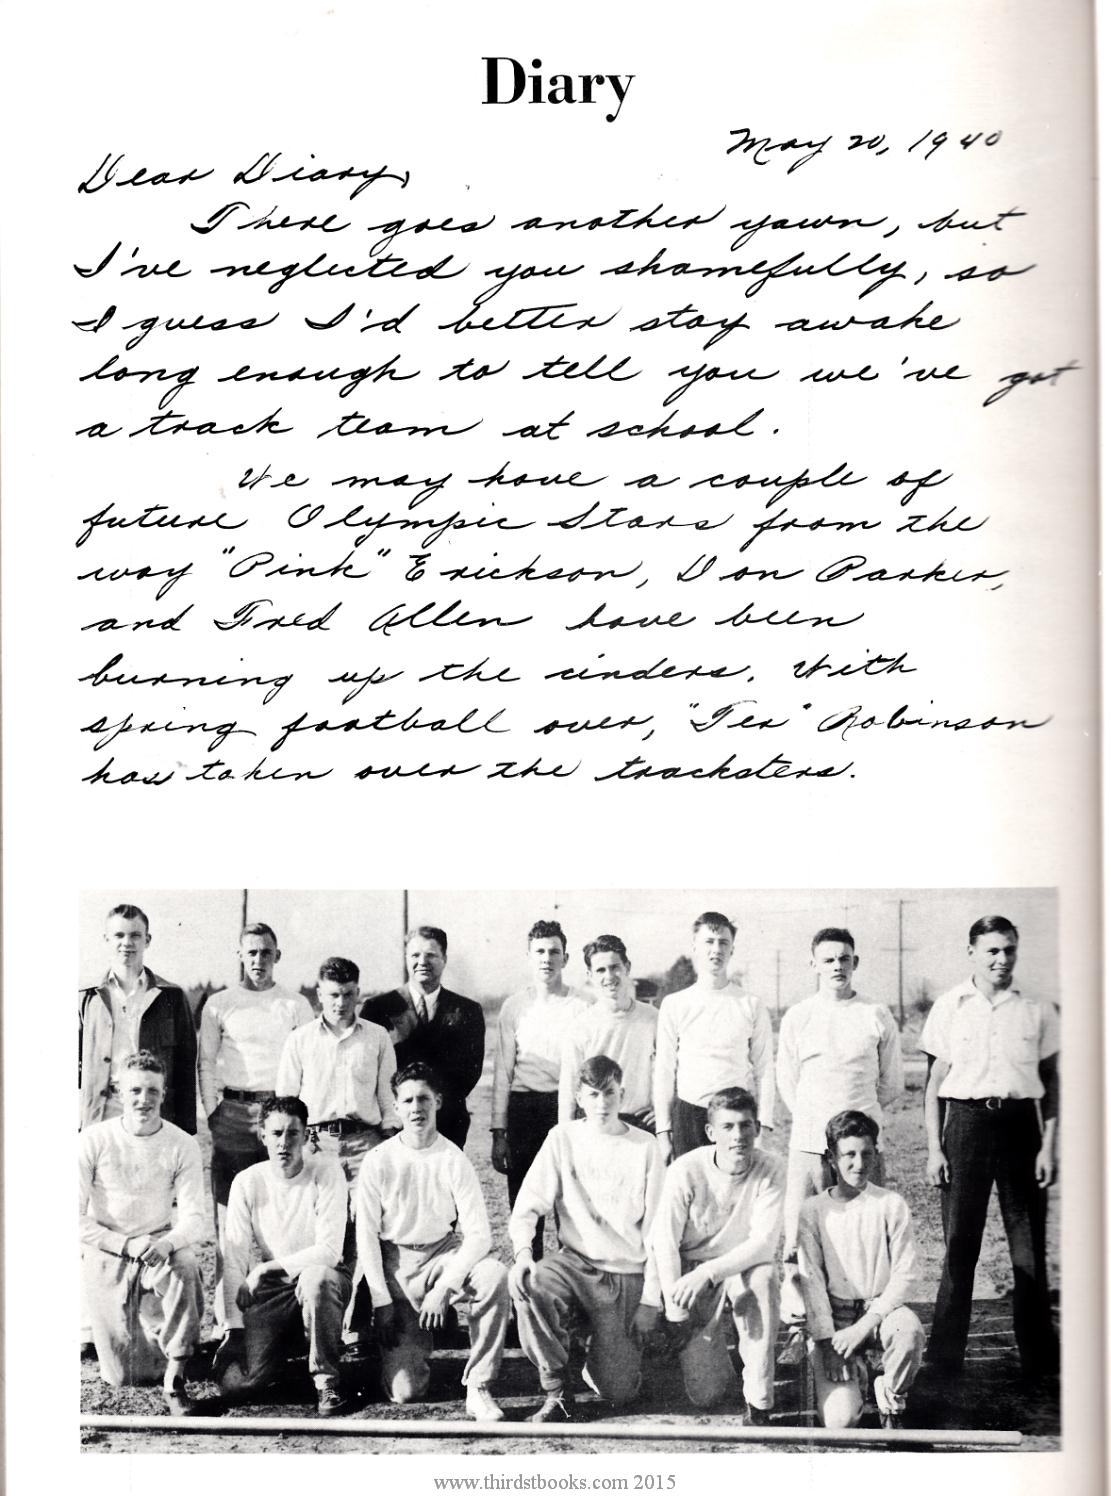 Diary
May 20, 1940
Dear Diary,
There goes another yawn, but
I've neglected you shamefully, so
I guess I'd better stay awake
long enough to tell you we've got
a track team at school.
We may have a couple of
future Olympic Stars from the
way "Pink" Erickson, Don Parker,
and Fred Allen have been
burning up the cinders. With
spring football over, "Tex" Robinson
has taken over the tracksters.
www.thirdstbooks.com 2015